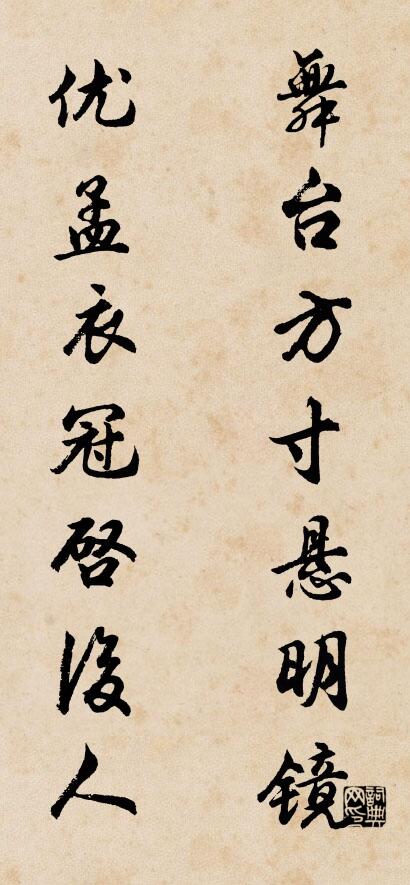 舞台方寸悬明镜
优孟衣冠启後人
詞典网印